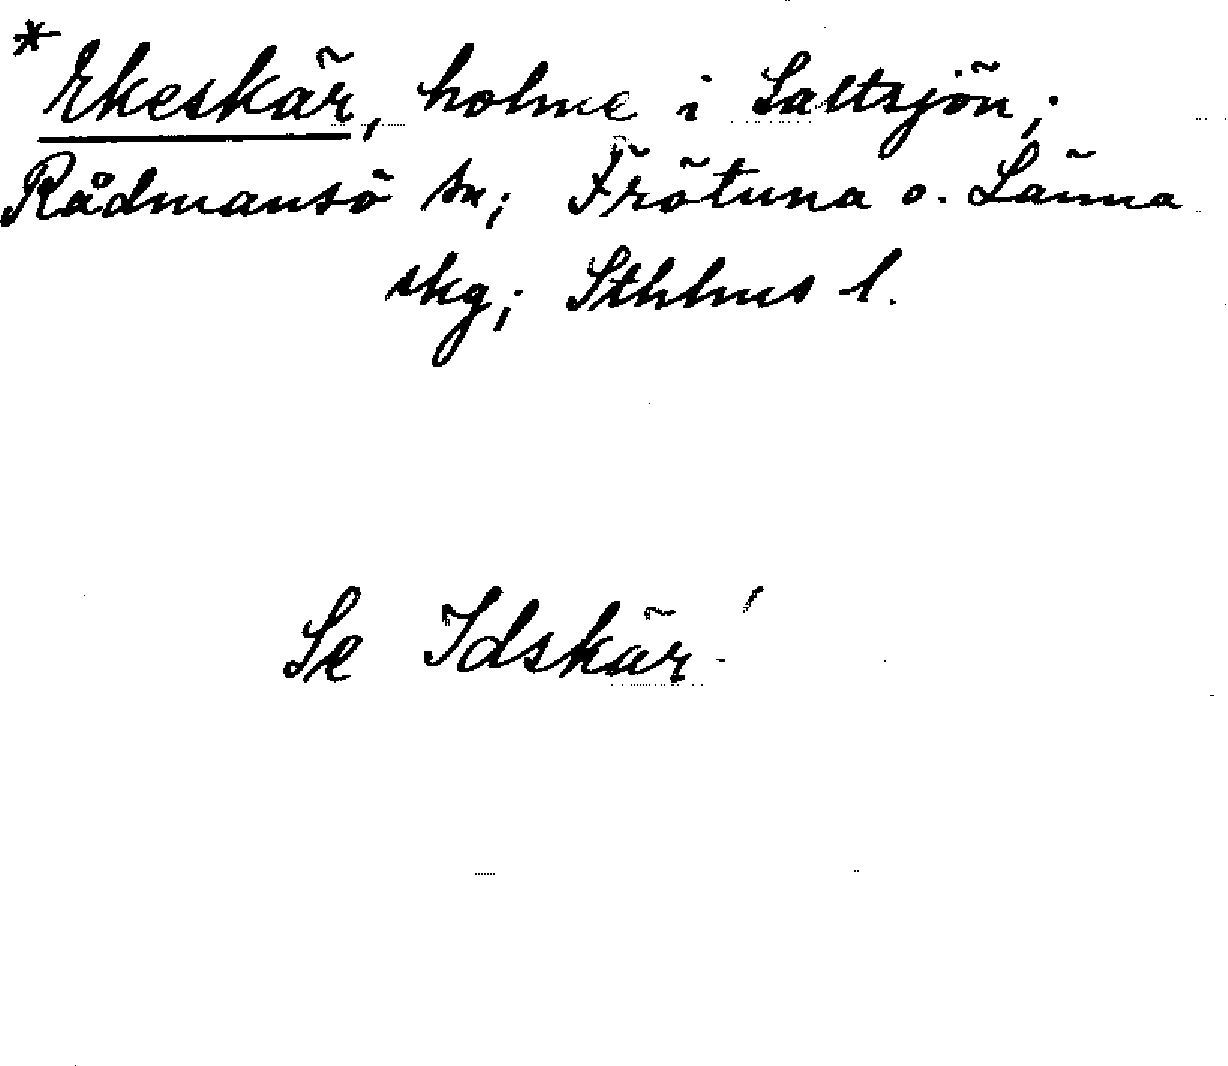 * Ekeskär, holme i Saltsjön;
Rådmansö sn; Frötuna o. Länna
skg; Sthlms l.
Se Idskär!